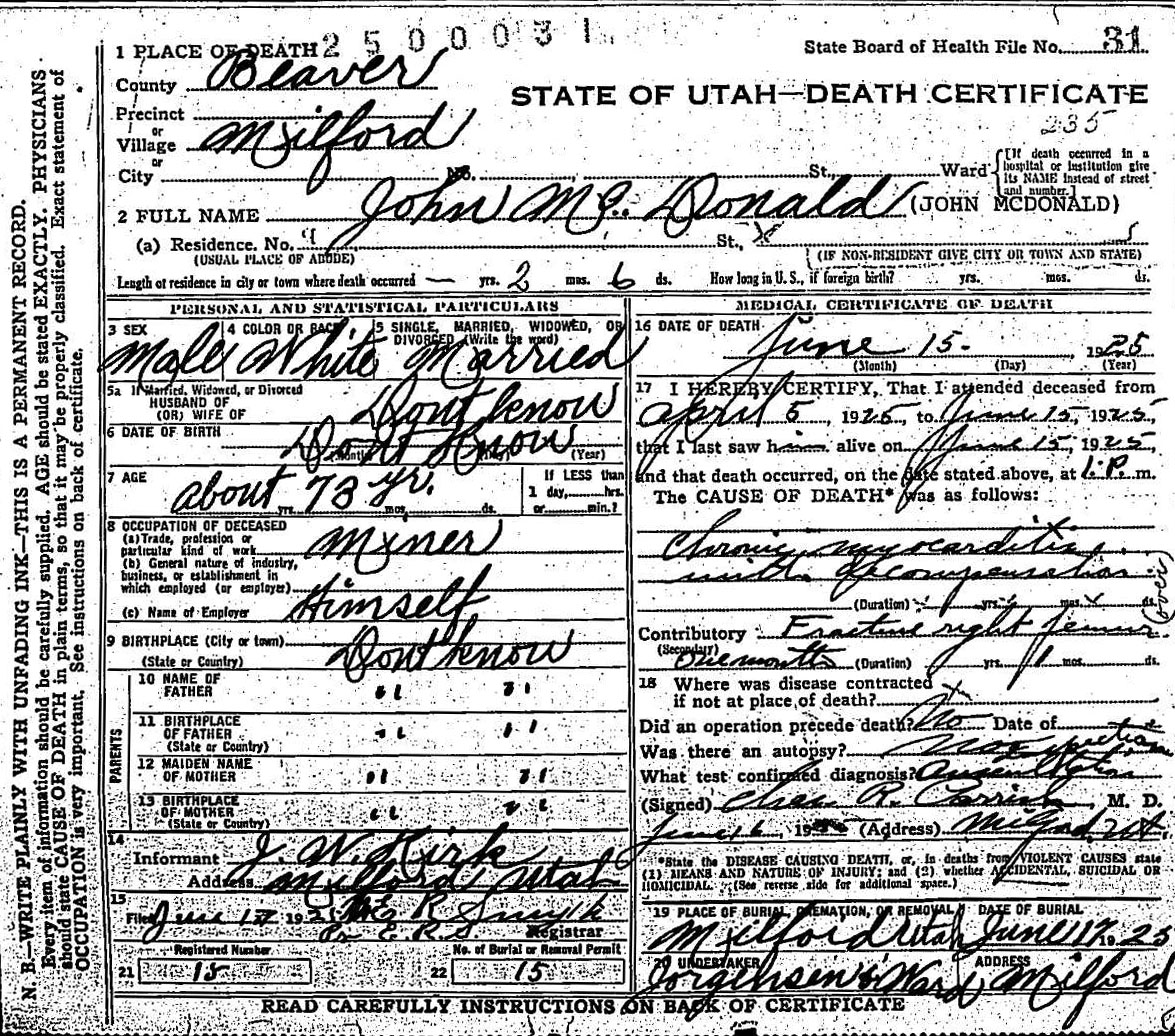 2500031
State Board of Health File No. 31
1 PLACE OF DEATH
County Beaver
STATE OF UTAH—DEATH CERTIFICATE
235
Precinct
or
Village Milford
or
City No. St., Ward
[If death occurred in a
hospital or institution give
its NAME instead of street
and number.]
2 FULL NAME John Mc. Donald (JOHN MCDONALD)
(a) Residence. No. St.,
(USUAL PLACE OF ABODE)
(IF NON-RESIDENT GIVE CITY OR TOWN AND STATE)
Length of residence in city or town where death occurred — yrs. 2 mos. 6 ds. How long in U.S., if foreign birth? yrs. mos. ds.
PERSONAL AND STATISTICAL PARTICULARS
3 SEX Male
4 COLOR OR RACE White
5 SINGLE, MARRIED, WIDOWED, OR
DIVORCED (Write the word) Married
5a If Married, Widowed, or Divorced
HUSBAND OF
(OR) WIFE OF Dont know
6 DATE OF BIRTH Dont Know
(Month) (Day) (Year)
7 AGE about 73 yr.
yrs. mos. ds.
If LESS than
1 day, hrs.
or min.?
8 OCCUPATION OF DECEASED
(a) Trade, profession or
particular kind of work Miner
(b) General nature of industry,
business, or establishment in
which employed (or employer)
(c) Name of Employer Himself
9 BIRTHPLACE (City or town)
(State or Country) Dont know
PARENTS
10 NAME OF
FATHER " "
11 BIRTHPLACE
OF FATHER " "
(State or Country)
12 MAIDEN NAME
OF MOTHER " "
13 BIRTHPLACE
OF MOTHER " "
(State or Country)
14
Informant J. W. Kirk
Address Milford Utah
15
Filed June 17 192 E R Smyth
Pr E. R. S. Registrar
Registered Number
21 15
No. of Burial or Removal Permit
22 15
MEDICAL CERTIFICATE OF DEATH
16 DATE OF DEATH
June 15. 1925
(Month) (Day) (Year)
17 I HEREBY CERTIFY, That I attended deceased from
April 5, 1925, to June 15, 1925,
that I last saw him alive on June 15, 1925
and that death occurred, on the date stated above, at 1 P. m.
The CAUSE OF DEATH* was as follows:
Chronic myocarditis
with decompensation
(over)
(Duration) yrs. mos. ds.
Contributory Fracture right femur
(Secondary)
One month (Duration) yrs. 1 mos. ds.
18 Where was disease contracted
if not at place of death? X
Did an operation precede death? No Date of
Was there an autopsy? No
What test confirmed diagnosis? Auscultation
(Signed) Chas R. Parrish, M. D.
June 16, 19 (Address) Milford Ut
*State the DISEASE CAUSING DEATH, or, in deaths from VIOLENT CAUSES state
(1) MEANS AND NATURE OF INJURY; and (2) whether ACCIDENTAL, SUICIDAL OR
HOMICIDAL. (See reverse side for additional space.)
19 PLACE OF BURIAL, CREMATION, OR REMOVAL DATE OF BURIAL
Milford Utah June 17 1925
20 UNDERTAKER ADDRESS
Jorgensen & Ward Milford
READ CAREFULLY INSTRUCTIONS ON BACK OF CERTIFICATE
N. B.—WRITE PLAINLY WITH UNFADING INK—THIS IS A PERMANENT RECORD.
Every item of information should be carefully supplied. AGE should be stated EXACTLY. PHYSICIANS
should state CAUSE OF DEATH in plain terms, so that it may be properly classified. Exact statement of
OCCUPATION is very important. See instructions on back of certificate.